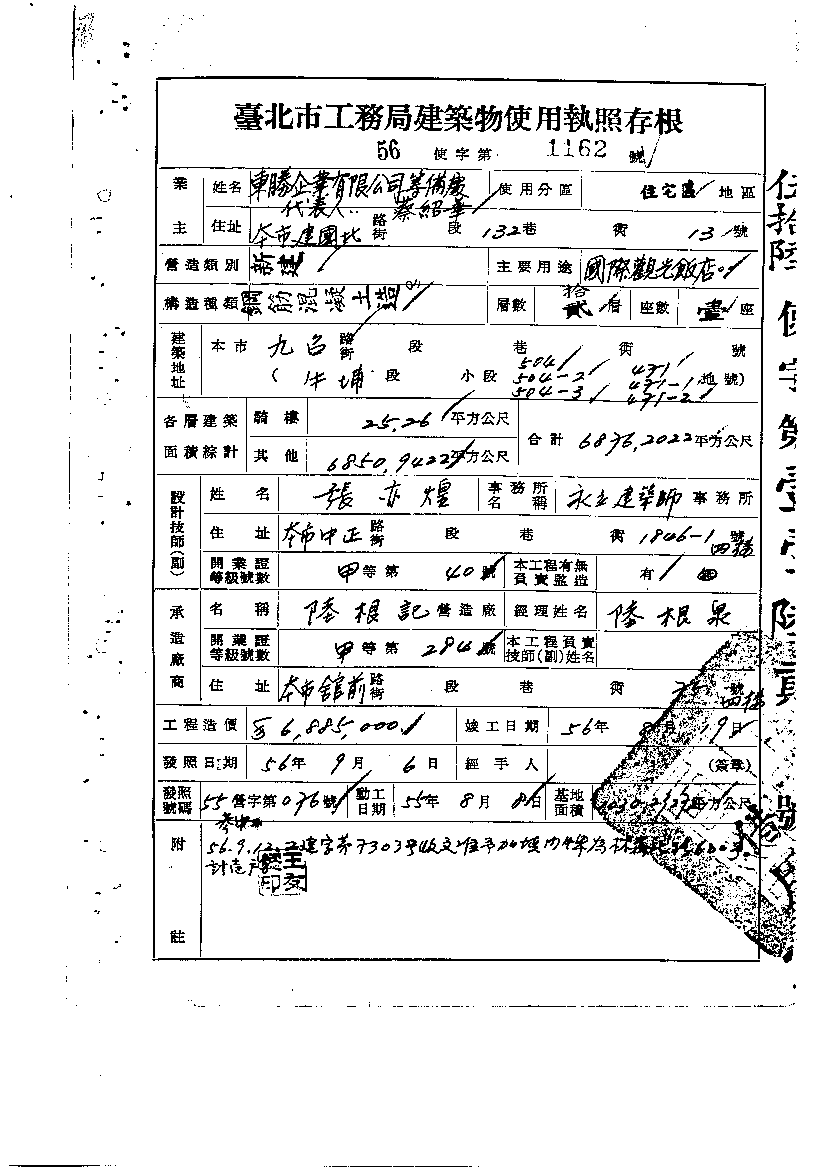 臺北市工務局建築物使用執照存根
56 使字第 1162 號
業主 姓名 東勝企業有限公司籌備處 代表人:蔡紹華 使用分區 住宅區 地區
住址 本市建國北 路街 段 132 巷 衖 13 號
營造類別 新建 主要用途 國際觀光飯店
構造種類 鋼筋混凝土造 層數 拾貳 層 座數 壹 座
建築地址 本市 九台 路街 段 巷 衖 號
( 牛埔 段 小段 504 504-2 504-3 471 471-1 471-2 地號)
各層建築面積綜計 騎樓 25.26 平方公尺 合計 6876.2022 平方公尺
其他 6850.9422 平方公尺
設計技師(副) 姓名 張亦煌 事務所名稱 永立建築師 事務所
住址 本市中正 路街 段 巷 衖 1846-1 號 四樓
開業證等級號數 甲等第 40 號 本工程有無負責監造 有
承造廠商 名稱 陸根記 營造廠 經理姓名 陸根泉
開業證等級號數 甲等第 284 號 本工程負責技師(副)姓名
住址 本市館前 路街 段 巷 衖 號 四樓
工程造價 6,885,000 竣工日期 56年 8月 19日
發照日期 56年 9月 6日 經手人 (簽章)
發照號碼 55 營字第 076 號 動工日期 55年 8月 8日 基地面積 平方公尺
附註
56.9.12
伍拾陸 使字第壹壹陸貳號